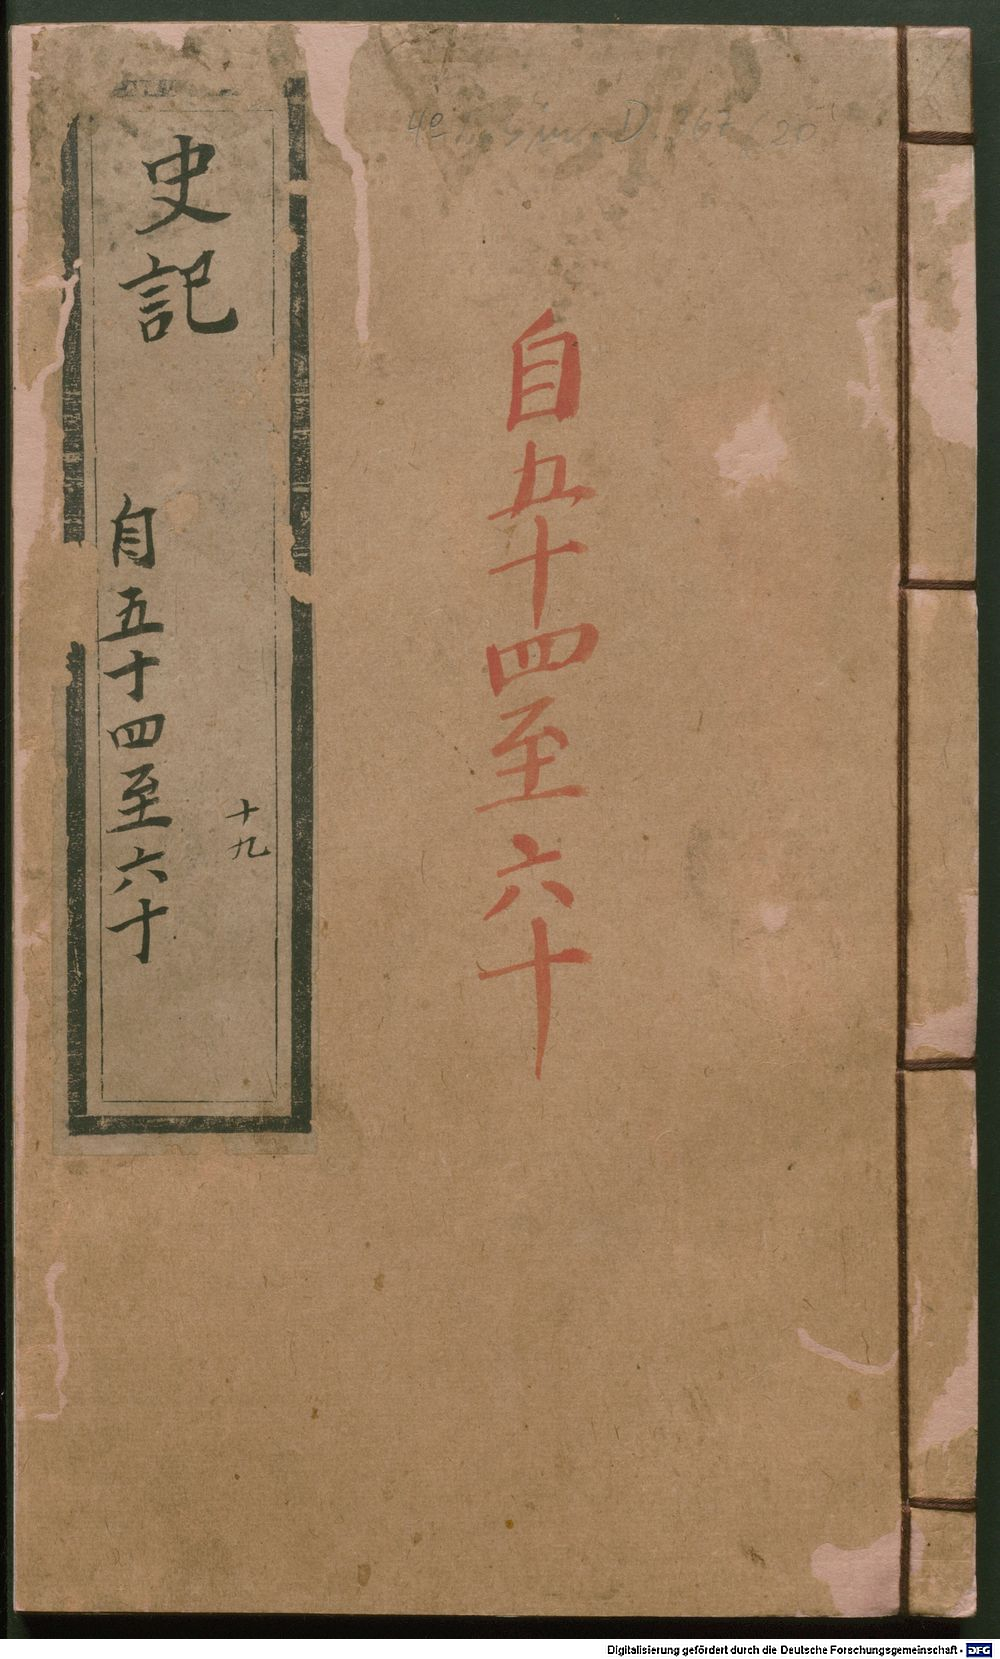 史記
自五十四至六十
十九
自五十四至六十
4º L.sin. D 167 (20
Digitalisierung gefördert durch die Deutsche Forschungsgemeinschaft - DFG